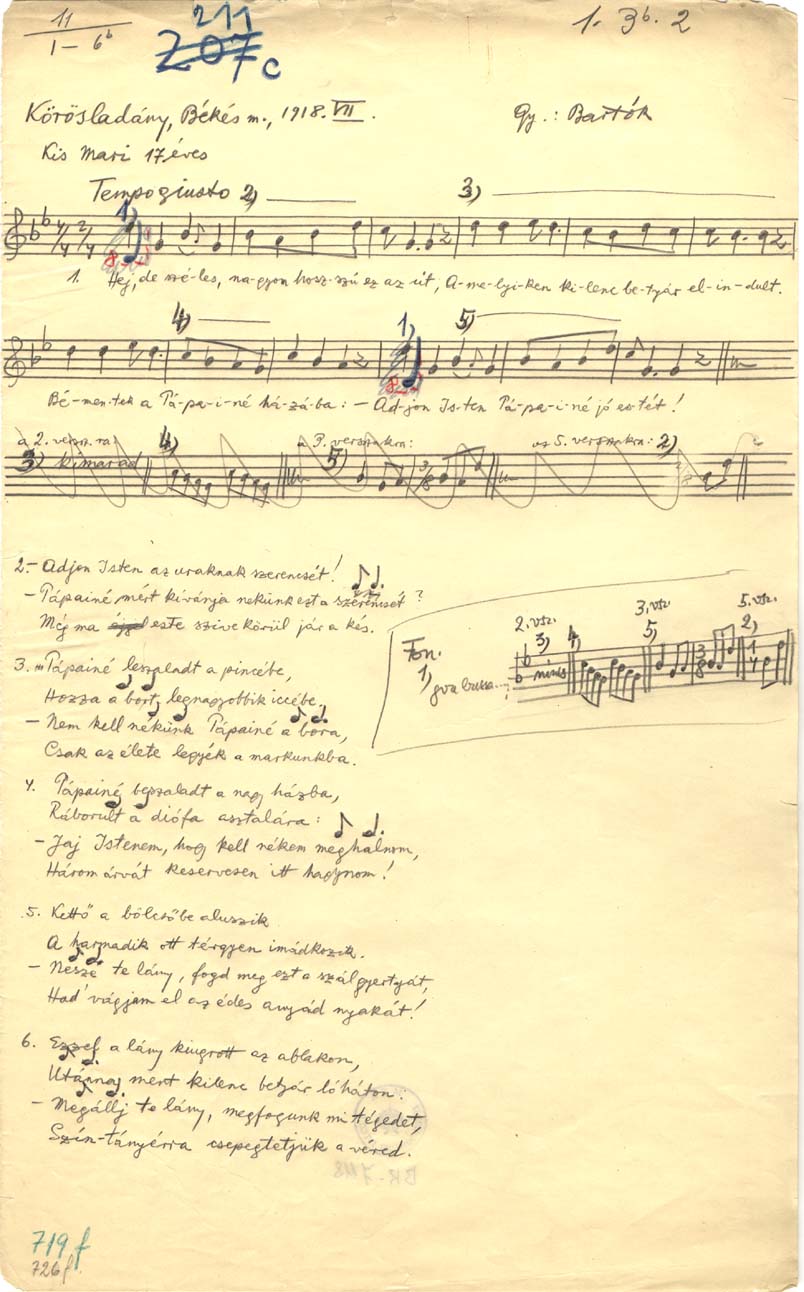 11
I – 6b
211
207c
1. 3b. 2
Körösladány, Békés m., 1918. VII.
Gy.: Bartók
Kis Mari 17 éves
Tempo giusto 2)
3)
1)
1. Hej, de szé-les, na-gyon hosz-szú ez az út, A-me-lyi-ken ki-lenc be-tyár el-in-dult.
4)
1)
5)
Bé-men-tek a Pá-pa-i-né há-zá-ba: – Ad-jon Is-ten Pá-pa-i-né jó es-tét!
a 2. versz.ra
4)
a 3. verszakra:
az 5. verszakra: 2)
3) kimarad
5)
2. – Adjon Isten az uraknak szerencsét!
– Pápainé, mért kívánja nekünk ezt a szerencsét?
Még ma este szive körül jár a kés.
Fon.
1)
2. vsz.
3)
nincs
4)
3. vsz.
5)
5. vsz.
2)
3. Pápainé leszaladt a pincébe,
Hozza a bort legnagyobbik iccébe,
– Nem kell nékünk Pápainé a bora,
Csak az élete legyék a markunkba.
4. Pápainé beszaladt a nagy házba,
Ráborult a diófa asztalára:
– Jaj Istenem, hogy kell nékem meghalnom,
Három árvát keservesen itt hagynom!
5. Kettő a bölcsőbe aluszik
A harmadik ott térgyen imádkozik.
– Nesze te lány, fogd meg ezt a szál gyertyát,
Had' vágjam el az édes anyád nyakát!
6. Ezzef a lány kiugrott az ablakon,
Utánnaj ment kilenc betyár lóháton:
– Megállj te lány, megfogunk mi tégedet,
Szín-tányérra csepegtetjük a véred.
BR-
719 f
726 f.